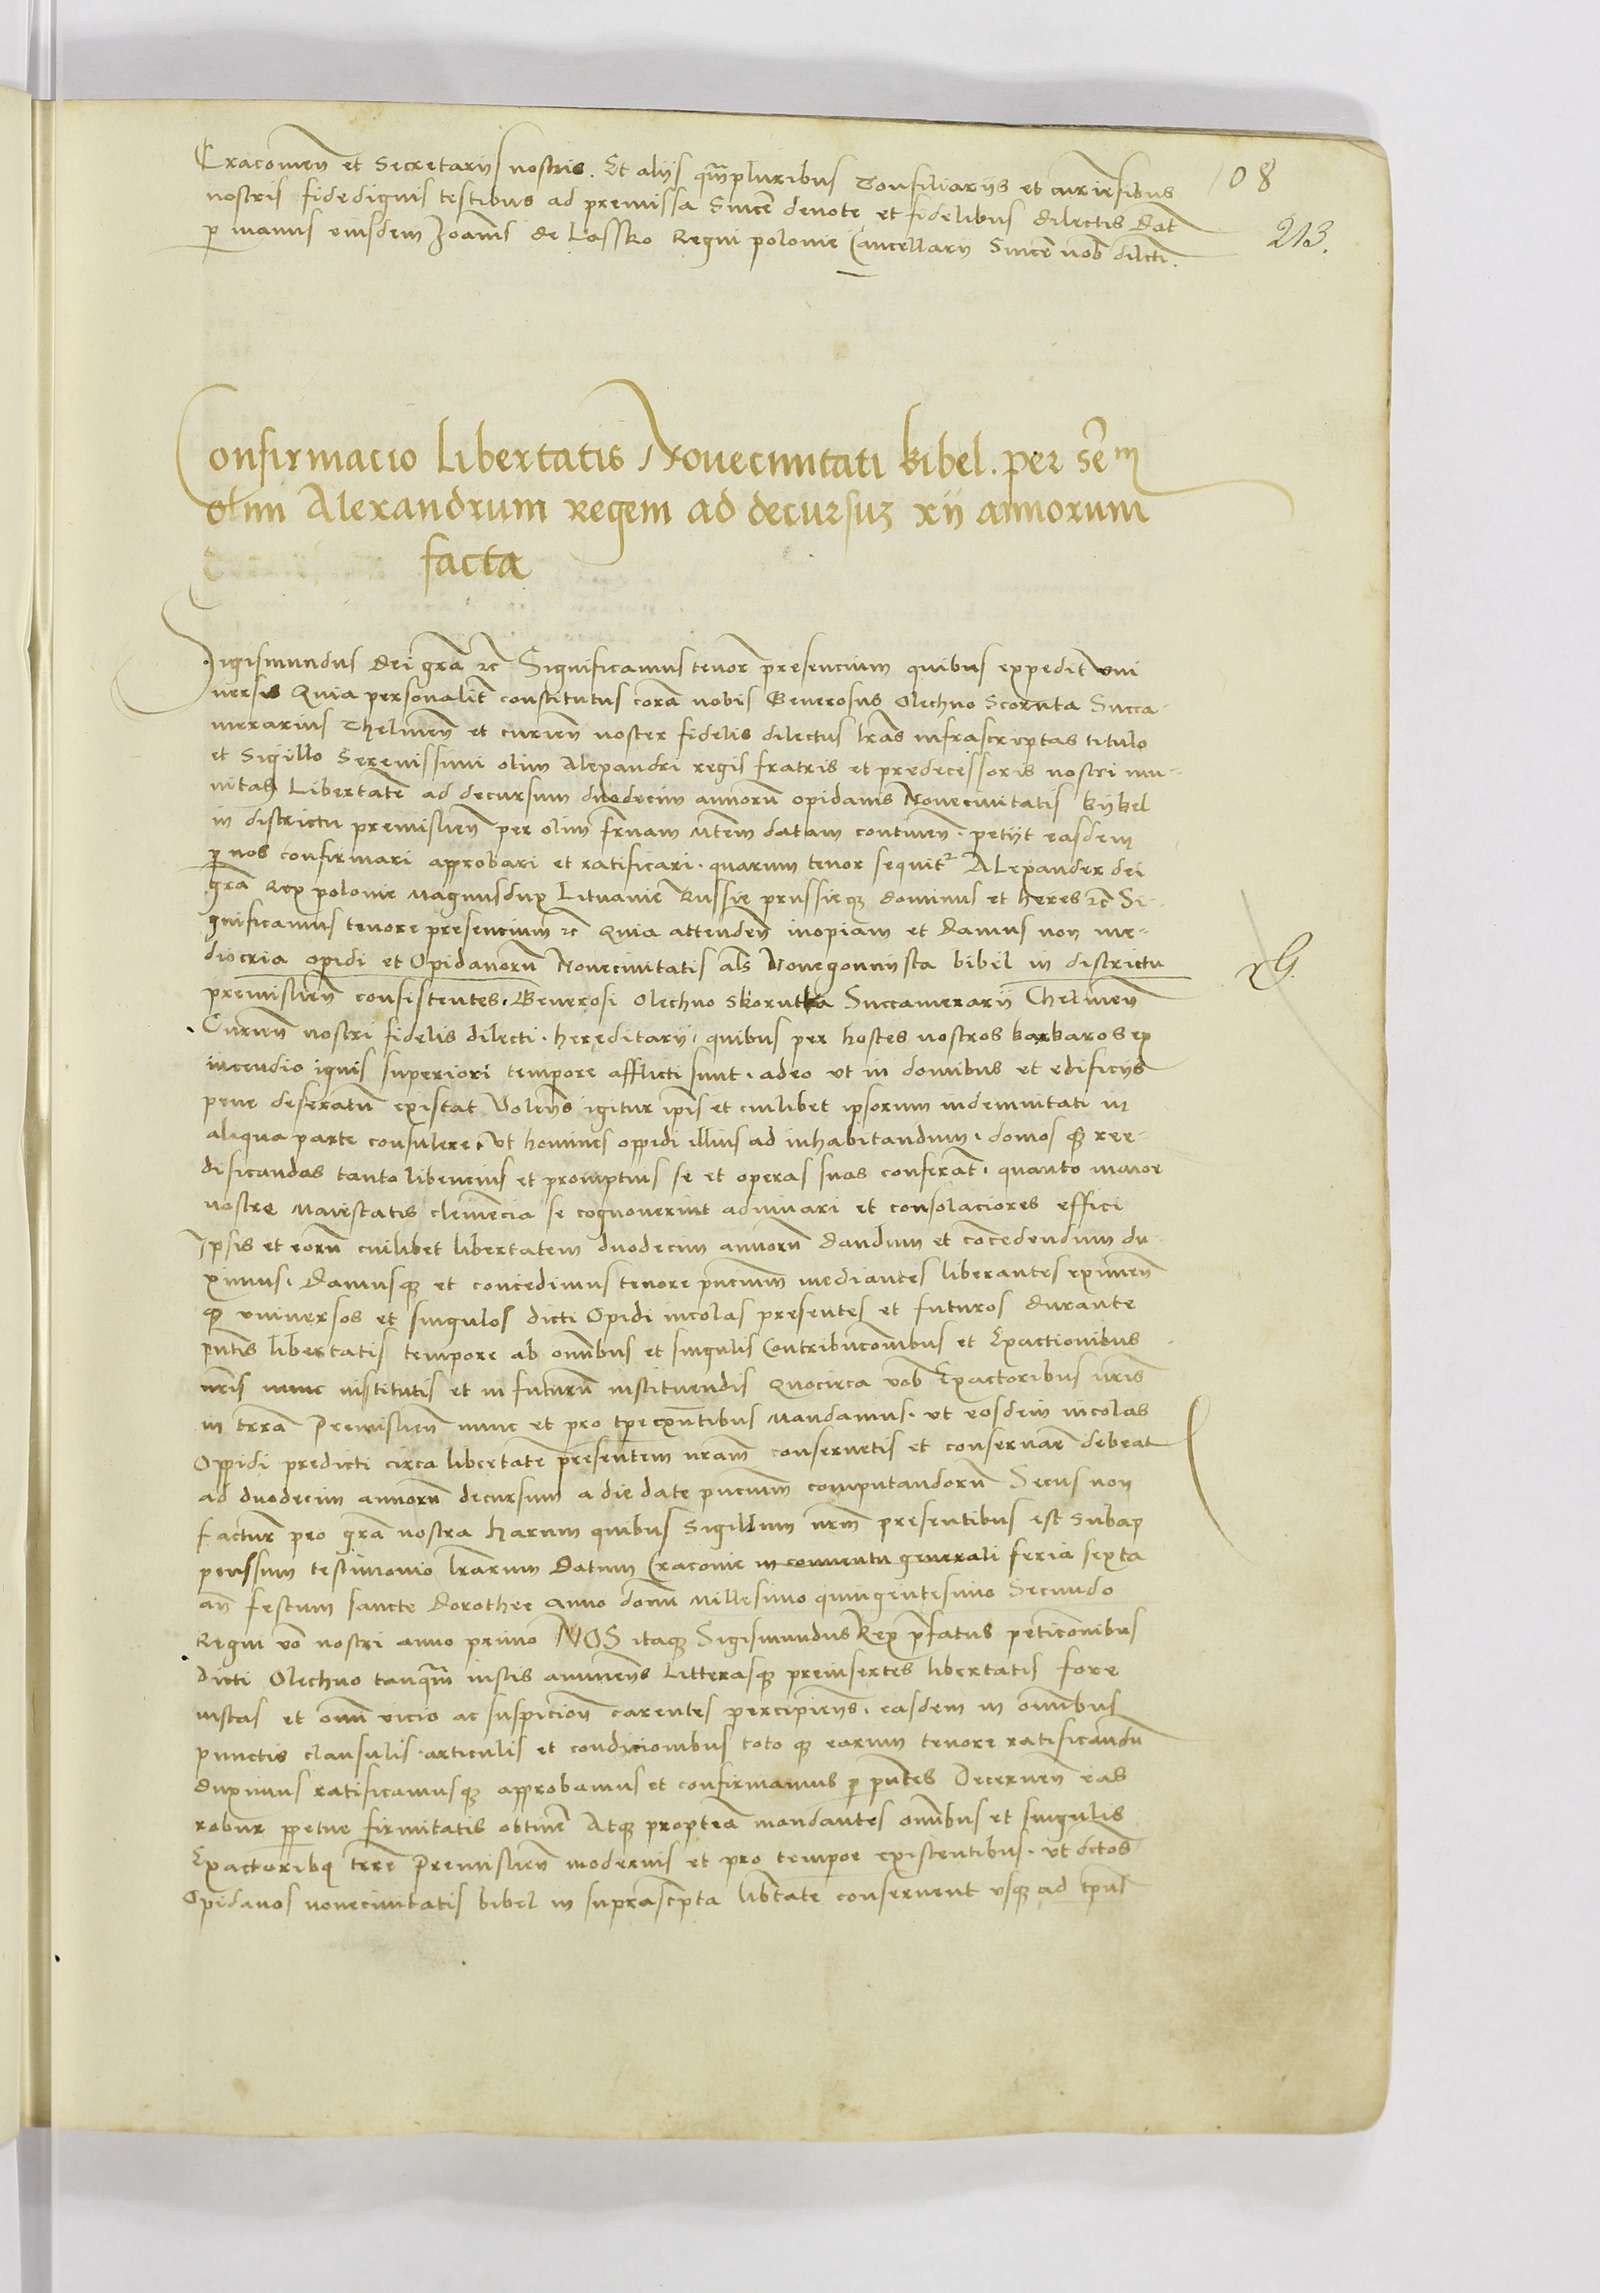 Cracovien et Secretariis nostris. Et aliis qmpluribus Consiliariis et curiensibus
108
nostris fidedignis testibus ad premissa Sincere devote et fidelibus dilectis Dat
213.
p manus eiusdem Joannis de Lassko Regni polonie Cancellarij Sincere nob dilcti.
Confirmacio libertatis Novecivitati bibel. per Sem
olim Alexandrum regem ad decursuz xij annorum
facta
Sigismundus dei gra etc Significamus tenore presencium quibus expedit uni
versis Quia personalit constitutus cora nobis Generosus Olechno Scoruta Succa-
merarius Chelmen et curien noster fidelis dilectus lras infrascriptas titulo
et sigillo Serenissimi olim Alexandri regis fratris et predecessoris nostri mu-
nitas Libertate ad decursum duodecim annoru opidanis Novecivitatis bybel
in districtu premislien per olim frnam utem datam continen. petiit easdem
p nos confirmari approbari et ratificari. quarum tenor sequit Alexander dei
gra Rex polonie magnusdux Lituanie Russie prussieq dominus et heres etc Si-
gnificamus tenore presencium etc Quia attenden inopiam et damus non me-
diocria opidi et Opidanoru Novecivitatis als Novegomiysta bibel in districtu
G.
premislien consistentes. Generosi Olechno Skorutha Succamerarij Chelmen
Curien nostri fidelis dilecti. hereditarij. quibus per hostes nostros barbaros ex
incendio ignis superiori tempore afflicti sunt. adeo ut in domibus et edificiis
pene deseratu existat Volens igitur ipis et cuilibet ipsorum indemnitati in
aliqua parte consulere. Ut homines oppidi illius ad inhabitandum. domos q ree-
dificandas tanto libencius et promptius se et operas suas conferat. quanto maiore
nostre maiestatis clemencia se cognoverint adiuvari et consolaciores effici
Ipsis et eoru cuilibet libertatem duodecim annoru dandum et concedendum du
ximus. Damusq et concedimus tenore pncium mediantes liberantes eximen
q universos et singulos dicti Opidi incolas presentes et futuros durante
pntis libertatis tempore ab omnibus et singulis Contribucionibus et Exactionibus
nris nunc institutis et in futuru instituendis Quocirca vob Exactoribus nris
in terra Premislien nunc et pro tpe exntibus mandamus. ut eosdem incolas
Oppidi predicti circa libertate presentem nram conservetis et conservare debeat
ad duodecim annoru decursum a die date pncium computandoru Secus non
factur pro gra nostra harum quibus Sigillum nrm presentibus est subap
penssum testimonio lrarum Datum Cracovie in conventu generali feria sexta
an festum sancte Dorothee anno domi Millesimo quingentesimo Secundo
Regni vo nostri anno primo NOS itaq Sigismundus Rex pfatus peticionibus
dicti Olechno tanqm iustis annuens Litterasq preinsertes libertatis fore
iustas et omni vicio ac suspicion carentes percipiens. easdem in omnibus
punctis clausulis. articulis et condicionibus toto q earum tenore ratificandu
duximus ratificamusq approbamus et confirmamus p pntes Decernen eas
robur ppetue firmitatis obtinere Atq propterea mandantes omnibus et singulis
Exactoribus terre Premislien modernis et pro tempore existentibus. ut dctos
Opidanos novecivitatis bibel in suprascpta libtate conservent usq ad tpus